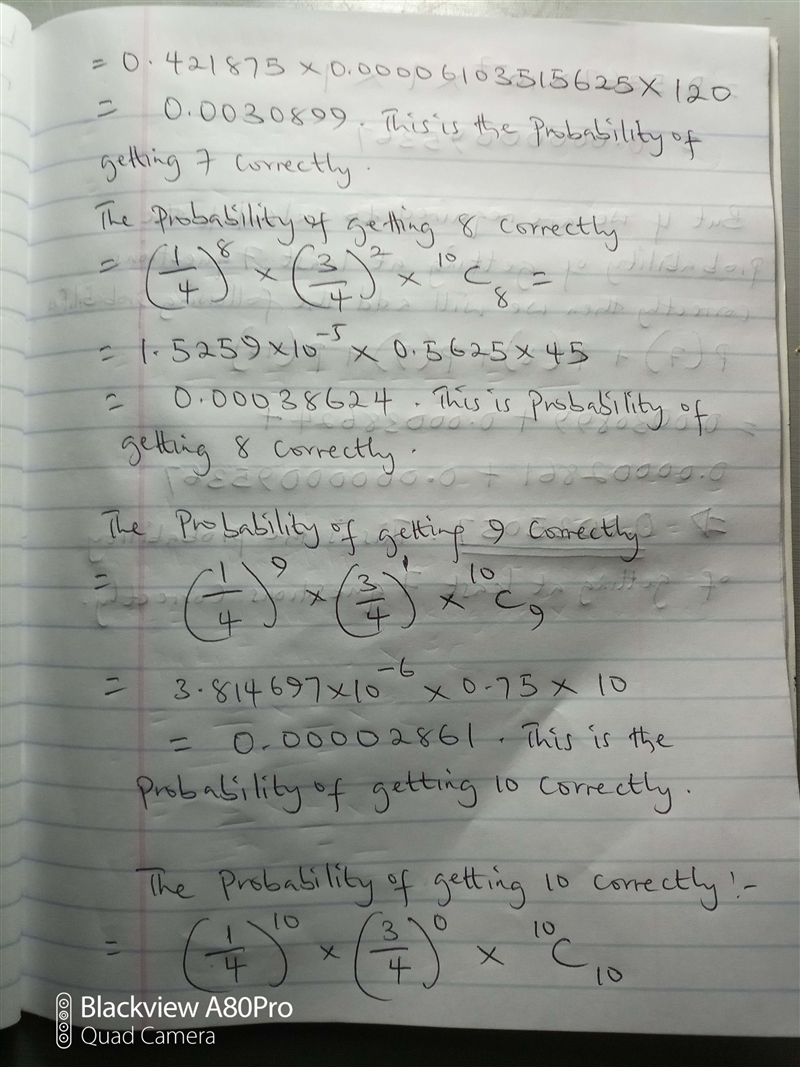 = 0.421875 × 0.00006103515625 × 120
= 0.0030899. This is the Probability of
getting 7 correctly.
The Probability of getting 8 correctly
= (1/4)^8 × (3/4)^2 × ^10C_8 =
= 1.5259 × 10^-5 × 0.5625 × 45
= 0.00038624. This is Probability of
getting 8 correctly.
The Probability of getting 9 Correctly
= (1/4)^9 × (3/4)^1 × ^10C_9
= 3.814697 × 10^-6 × 0.75 × 10
= 0.00002861. This is the
Probability of getting 10 correctly.
The Probability of getting 10 correctly:-
= (1/4)^10 × (3/4)^0 × ^10C_10
Blackview A80Pro
Quad Camera